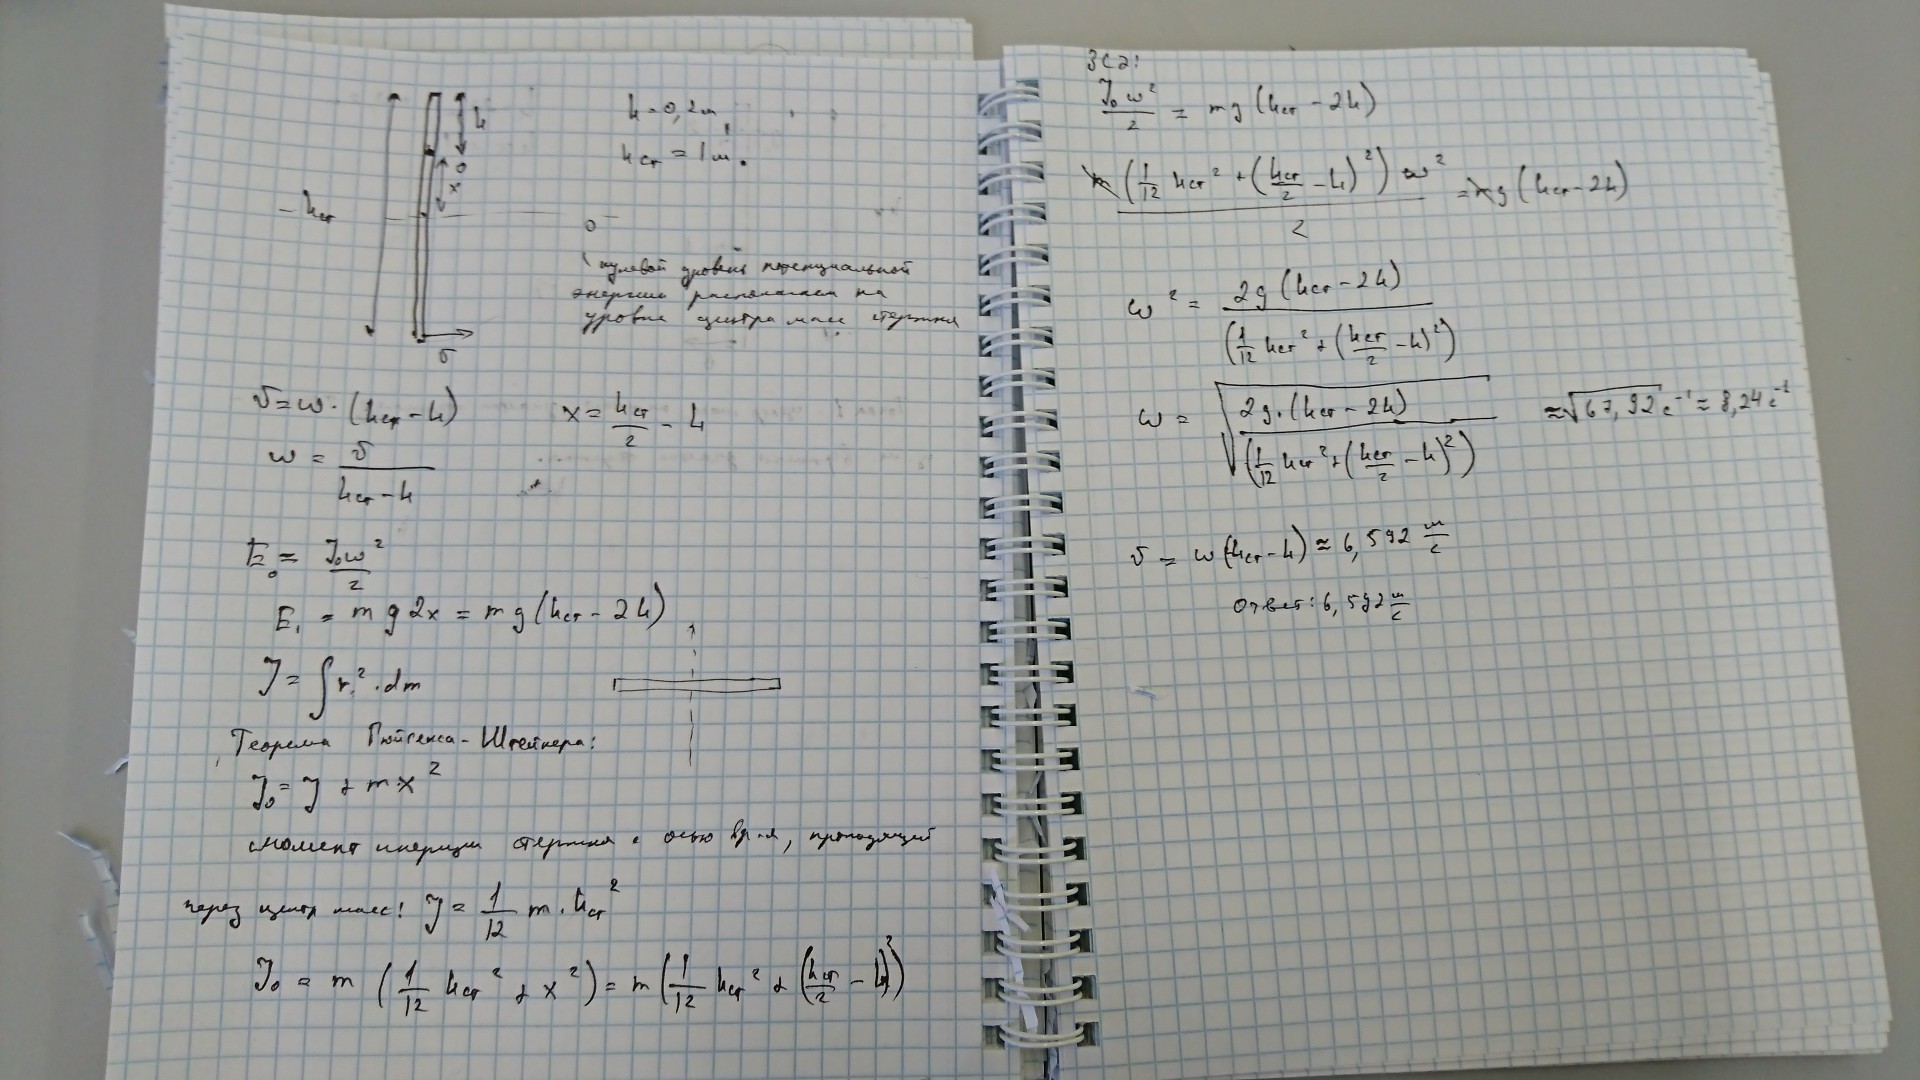 h = 0,2 м
hст = 1 м.
h
0
x
hст
0
нулевой уровень потенциальной
энергии располагаем на
уровне центра масс стержня
v
v = ω · (hст − h)
x = hст/2 − h
ω = v/(hст − h)
E₀ = J₀ω²/2
E₁ = mg2x = mg(hст − 2h)
J = ∫ r² · dm
Теорема Гюйгенса-Штейнера:
J₀ = J + mx²
момент инерции стержня с осью вр-я, проходящей
через центр масс: J = 1/12 m · hст²
J₀ = m (1/12 hст² + x²) = m (1/12 hст² + (hст/2 − h)²)
ЗСЭ:
J₀ω²/2 = mg (hст − 2h)
m (1/12 hст² + (hст/2 − h)²) ω²/2 = mg (hст − 2h)
ω² = 2g (hст − 2h)/(1/12 hст² + (hст/2 − h)²)
ω = √(2g · (hст − 2h)/(1/12 hст² + (hст/2 − h)²)) ≈ √67,92 с⁻¹ ≈ 8,24 с⁻¹
v = ω (hст − h) ≈ 6,592 м/с
Ответ: 6,592 м/с